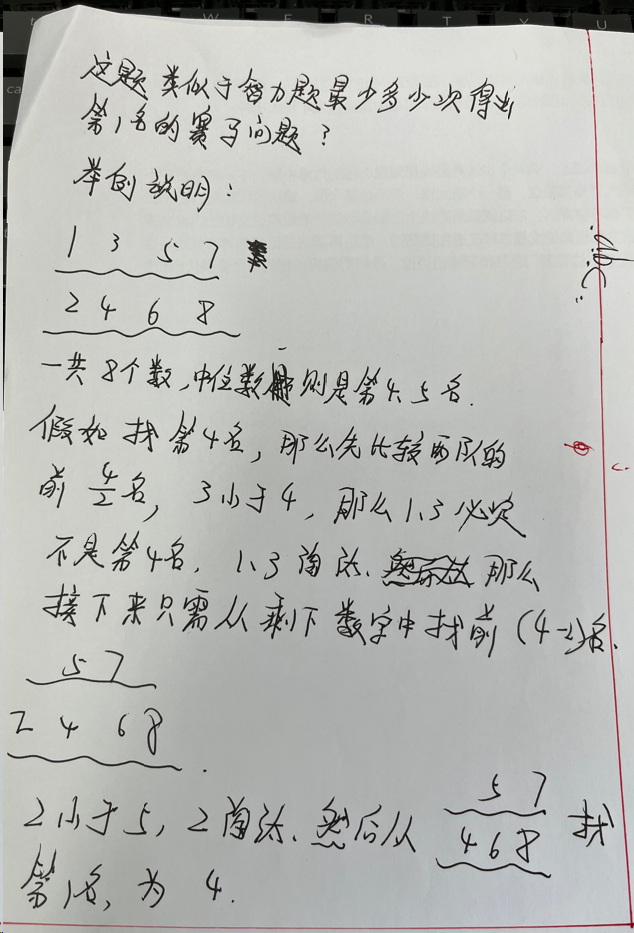 这题类似于智力题最少多少次得出
第1名的赛马问题?
举例说明:
1 3 5 7
2 4 6 8
一共8个数,中位数则是第4、5名.
假如找第4名,那么先比较两队的
前4/2名,3小于4,那么1、3必定
不是第4名,1、3淘汰、那么
接下来只需从剩下数字中找前(4-2)名.
5 7
2 4 6 8
2小于5,2淘汰、然后从 5 7 找
4 6 8
第1名,为 4.